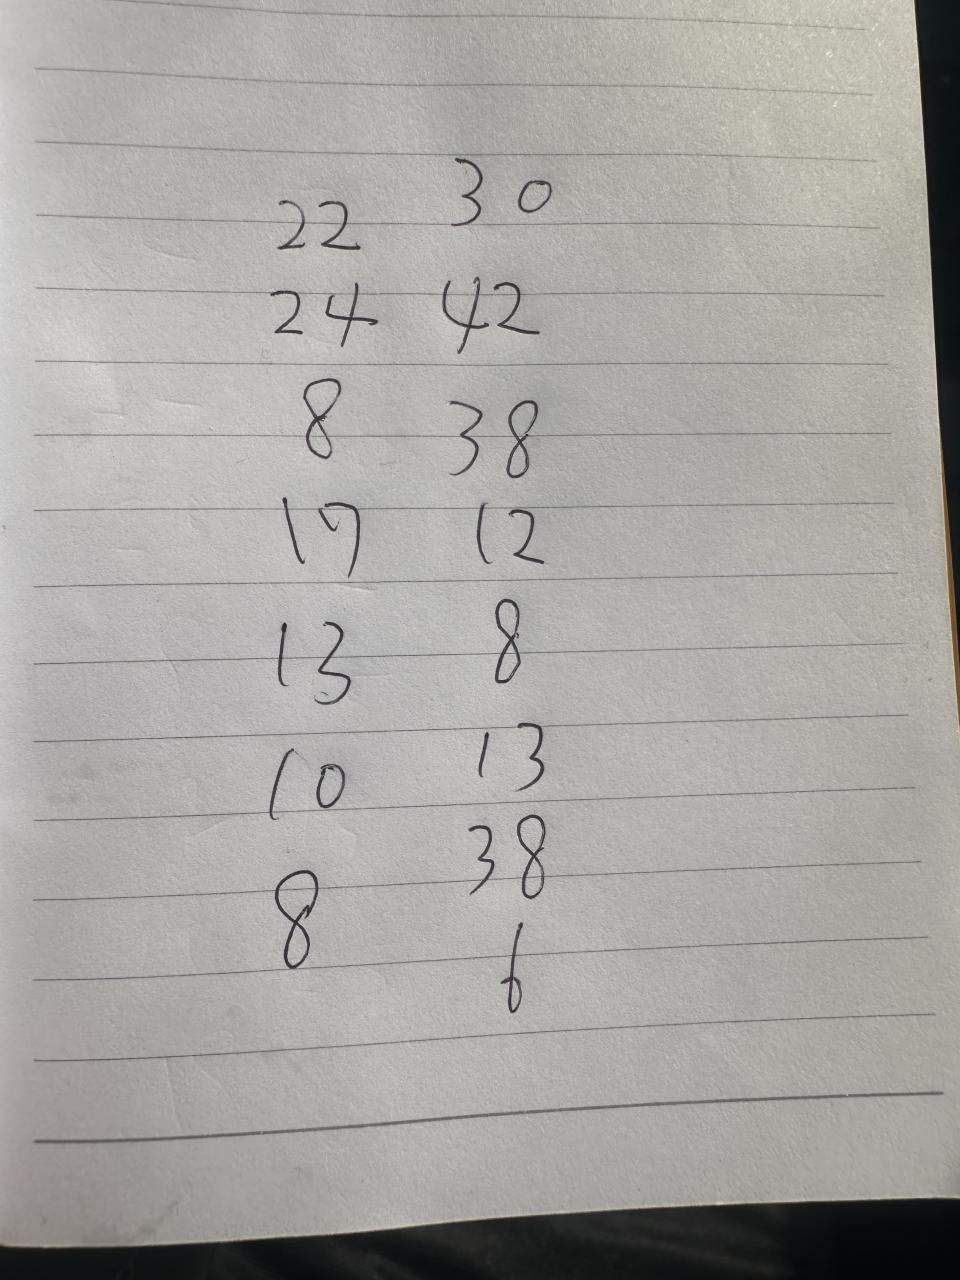 22 30
24 42
8 38
17 12
13 8
10 13
8 38
6